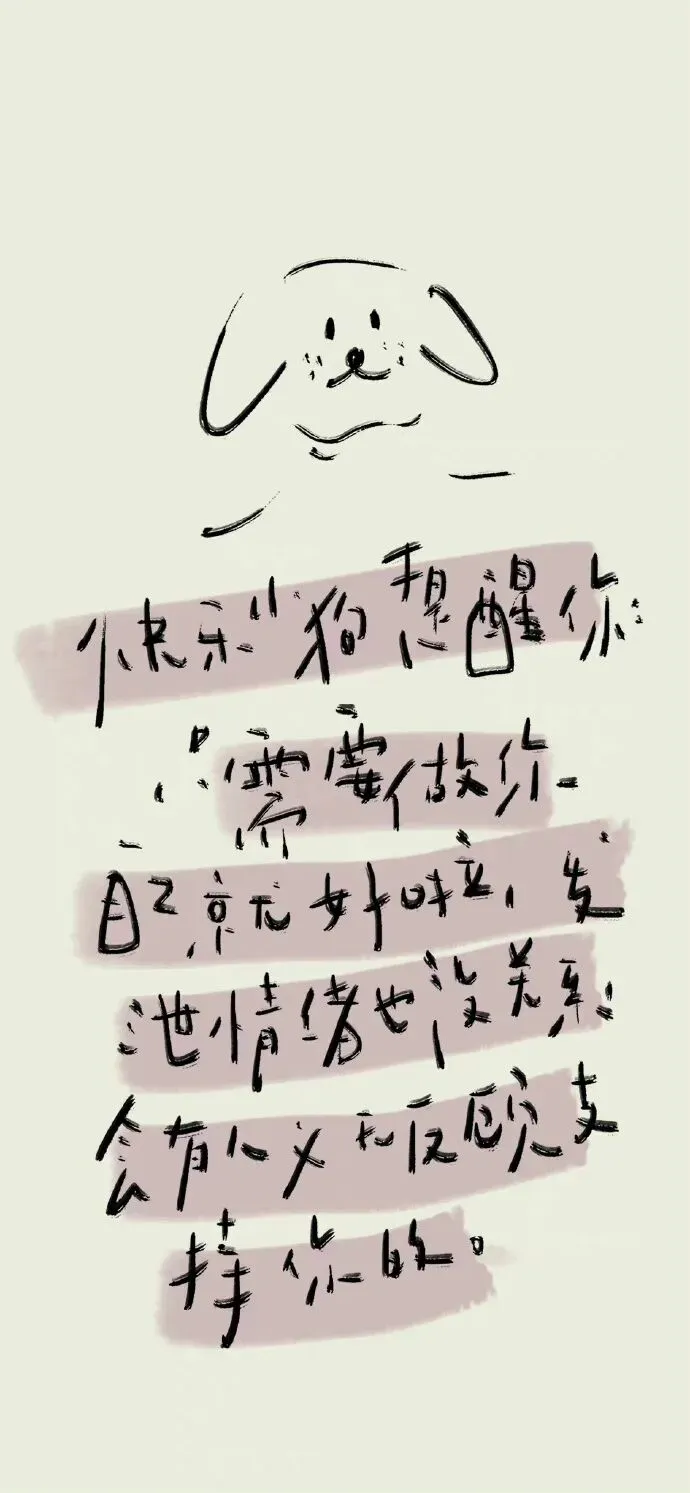 快乐小狗想醒你:
只需要做你
自己就好啦，发
泄情绪也没关系
会有人义无反顾支
持你的。